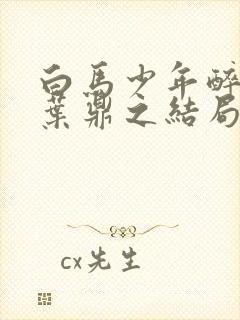 白馬少年醉
葉鼎之結局
cx先生